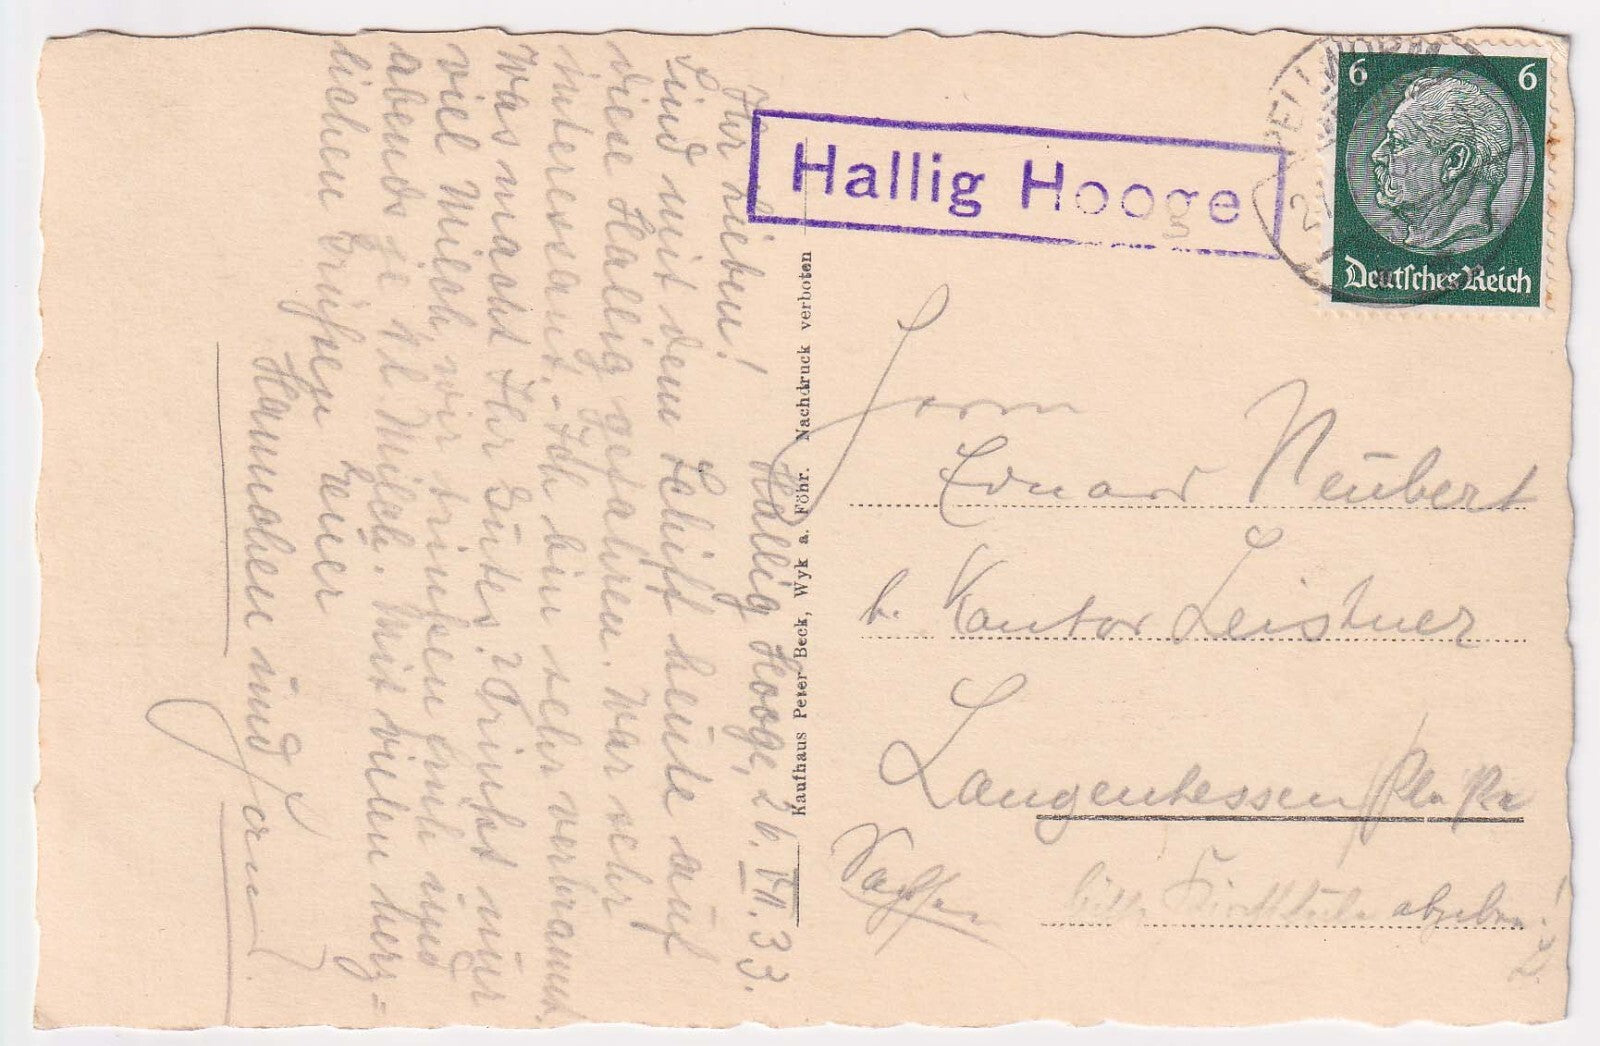 Hallig Hooge, 26. VII. 33.
Ihr Lieben!
Sind mit dem Schiff heute auf
diese Hallig gefahren. War sehr
interessant. Ich bin sehr verbrannt.
Was macht Ihr Guten? Trinket nur
viel Milch, wir trinken früh und
abends je ½l. Milch. Mit vielen herz=
lichen Grüßen Eure
Hannchen und
Kaufhaus Peter Beck, Wyk a. Föhr. Nachdruck verboten
Hallig Hooge
PELLWORM
6 6
Deutsches Reich
Herrn
Eduard Neubert
b. Kantor Leistner
Langenhessen
Sachsen
bitte abgeben!